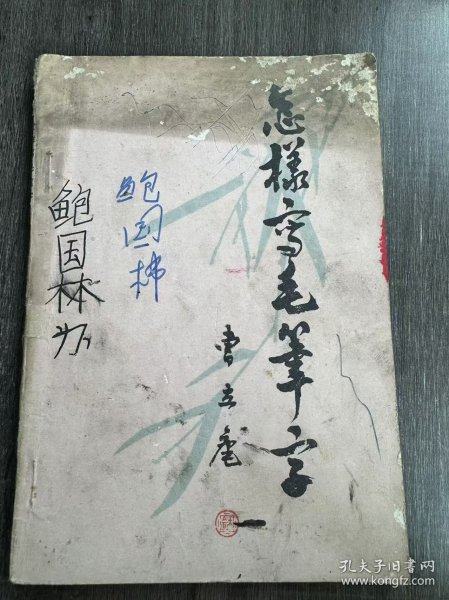 怎樣寫毛筆字
曹立庵
一
鲍国林
鲍国林
孔夫子旧书网
www.kongfz.com